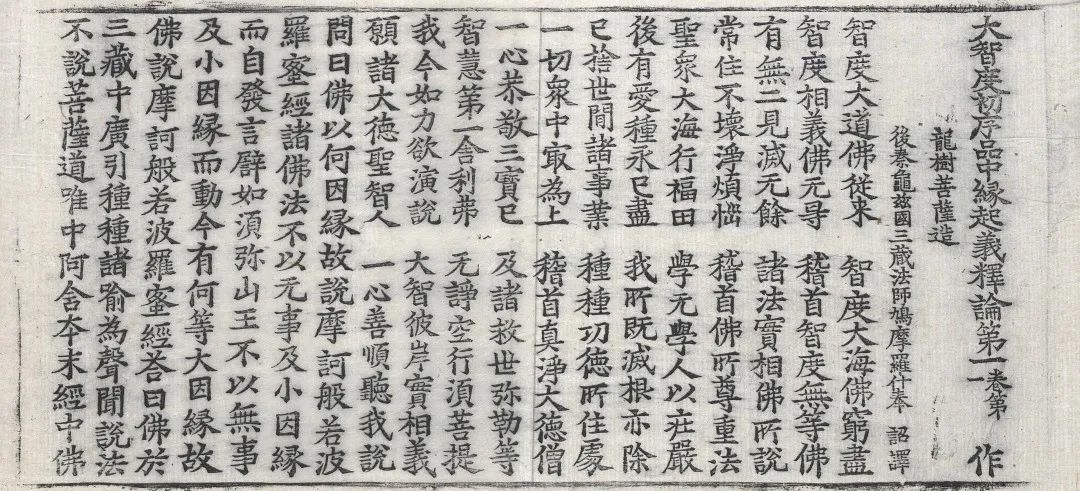 大智度初序品中縁起義釋論第一卷第一 作
龍樹菩薩造
後秦龜兹國三藏法師鳩摩羅什奉 詔譯
智度大道佛從来 智度大海佛窮盡
智度相義佛无㝵 稽首智度無等佛
有無二見滅无餘 諸法實相佛所說
常住不壞淨煩惱 稽首佛所尊重法
聖衆大海行福田 學无學人以莊嚴
後有愛種永已盡 我所既滅根亦除
已捨世間諸事業 種種功德所住處
一切衆中㝡為上 稽首真淨大德僧
一心恭敬三寶已 及諸救世弥勒等
智慧第一舍利弗 无諍空行須菩提
我今如力欲演說 大智彼岸實相義
願諸大德聖智人 一心善順聽我說
問曰佛以何因縁故說摩訶般若波
羅蜜經諸佛法不以无事及小因縁
而自發言譬如須弥山王不以無事
及小因縁而動今有何等大因縁故
佛說摩訶般若波羅蜜經荅曰佛於
三藏中廣引種種諸喻為聲聞說法
不說菩薩道唯中阿含夲末經中佛